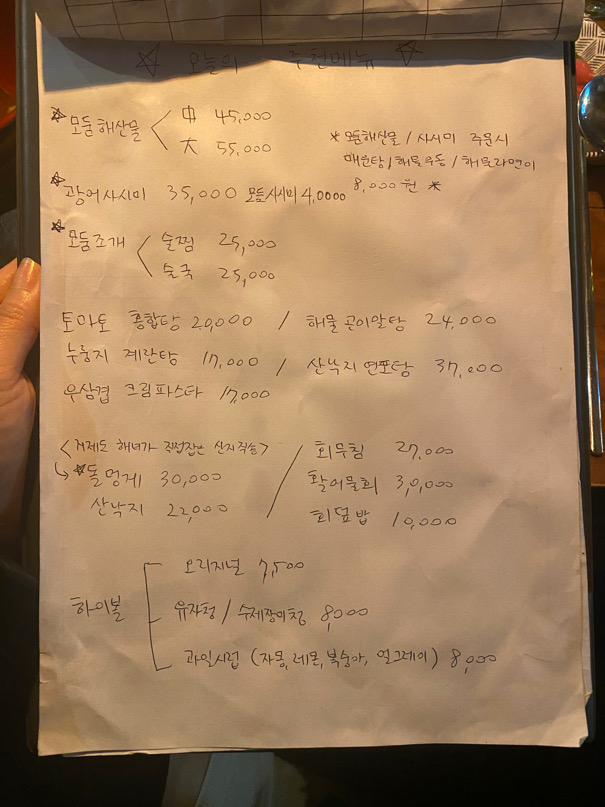 ☆ 오늘의 추천메뉴 ☆
☆ 모둠해산물 < 中 45,000
大 55,000
* 모둠해산물 / 사시미 주문시
매운탕 / 해물우동 / 해물라면이
8,000원 *
☆ 광어사시미 35,000 모둠사시미 4,0000
☆ 모둠조개 < 술찜 25,000
술국 25,000
토마토 홍합탕 20,000 / 해물곤이알탕 24,000
누룽지 계란탕 17,000 / 산낙지 연포탕 37,000
우삼겹 크림파스타 17,000
<거제도 해녀가 직접잡은 산지직송>
↳ ☆돌멍게 30,000
산낙지 22,000
/ 회무침 27,000
활어물회 3,0,000
회덮밥 10,000
하이볼
오리지널 7,500
유자청 / 수제장미청 8,000
과일시럽 (자몽, 레몬, 복숭아, 얼그레이) 8,000